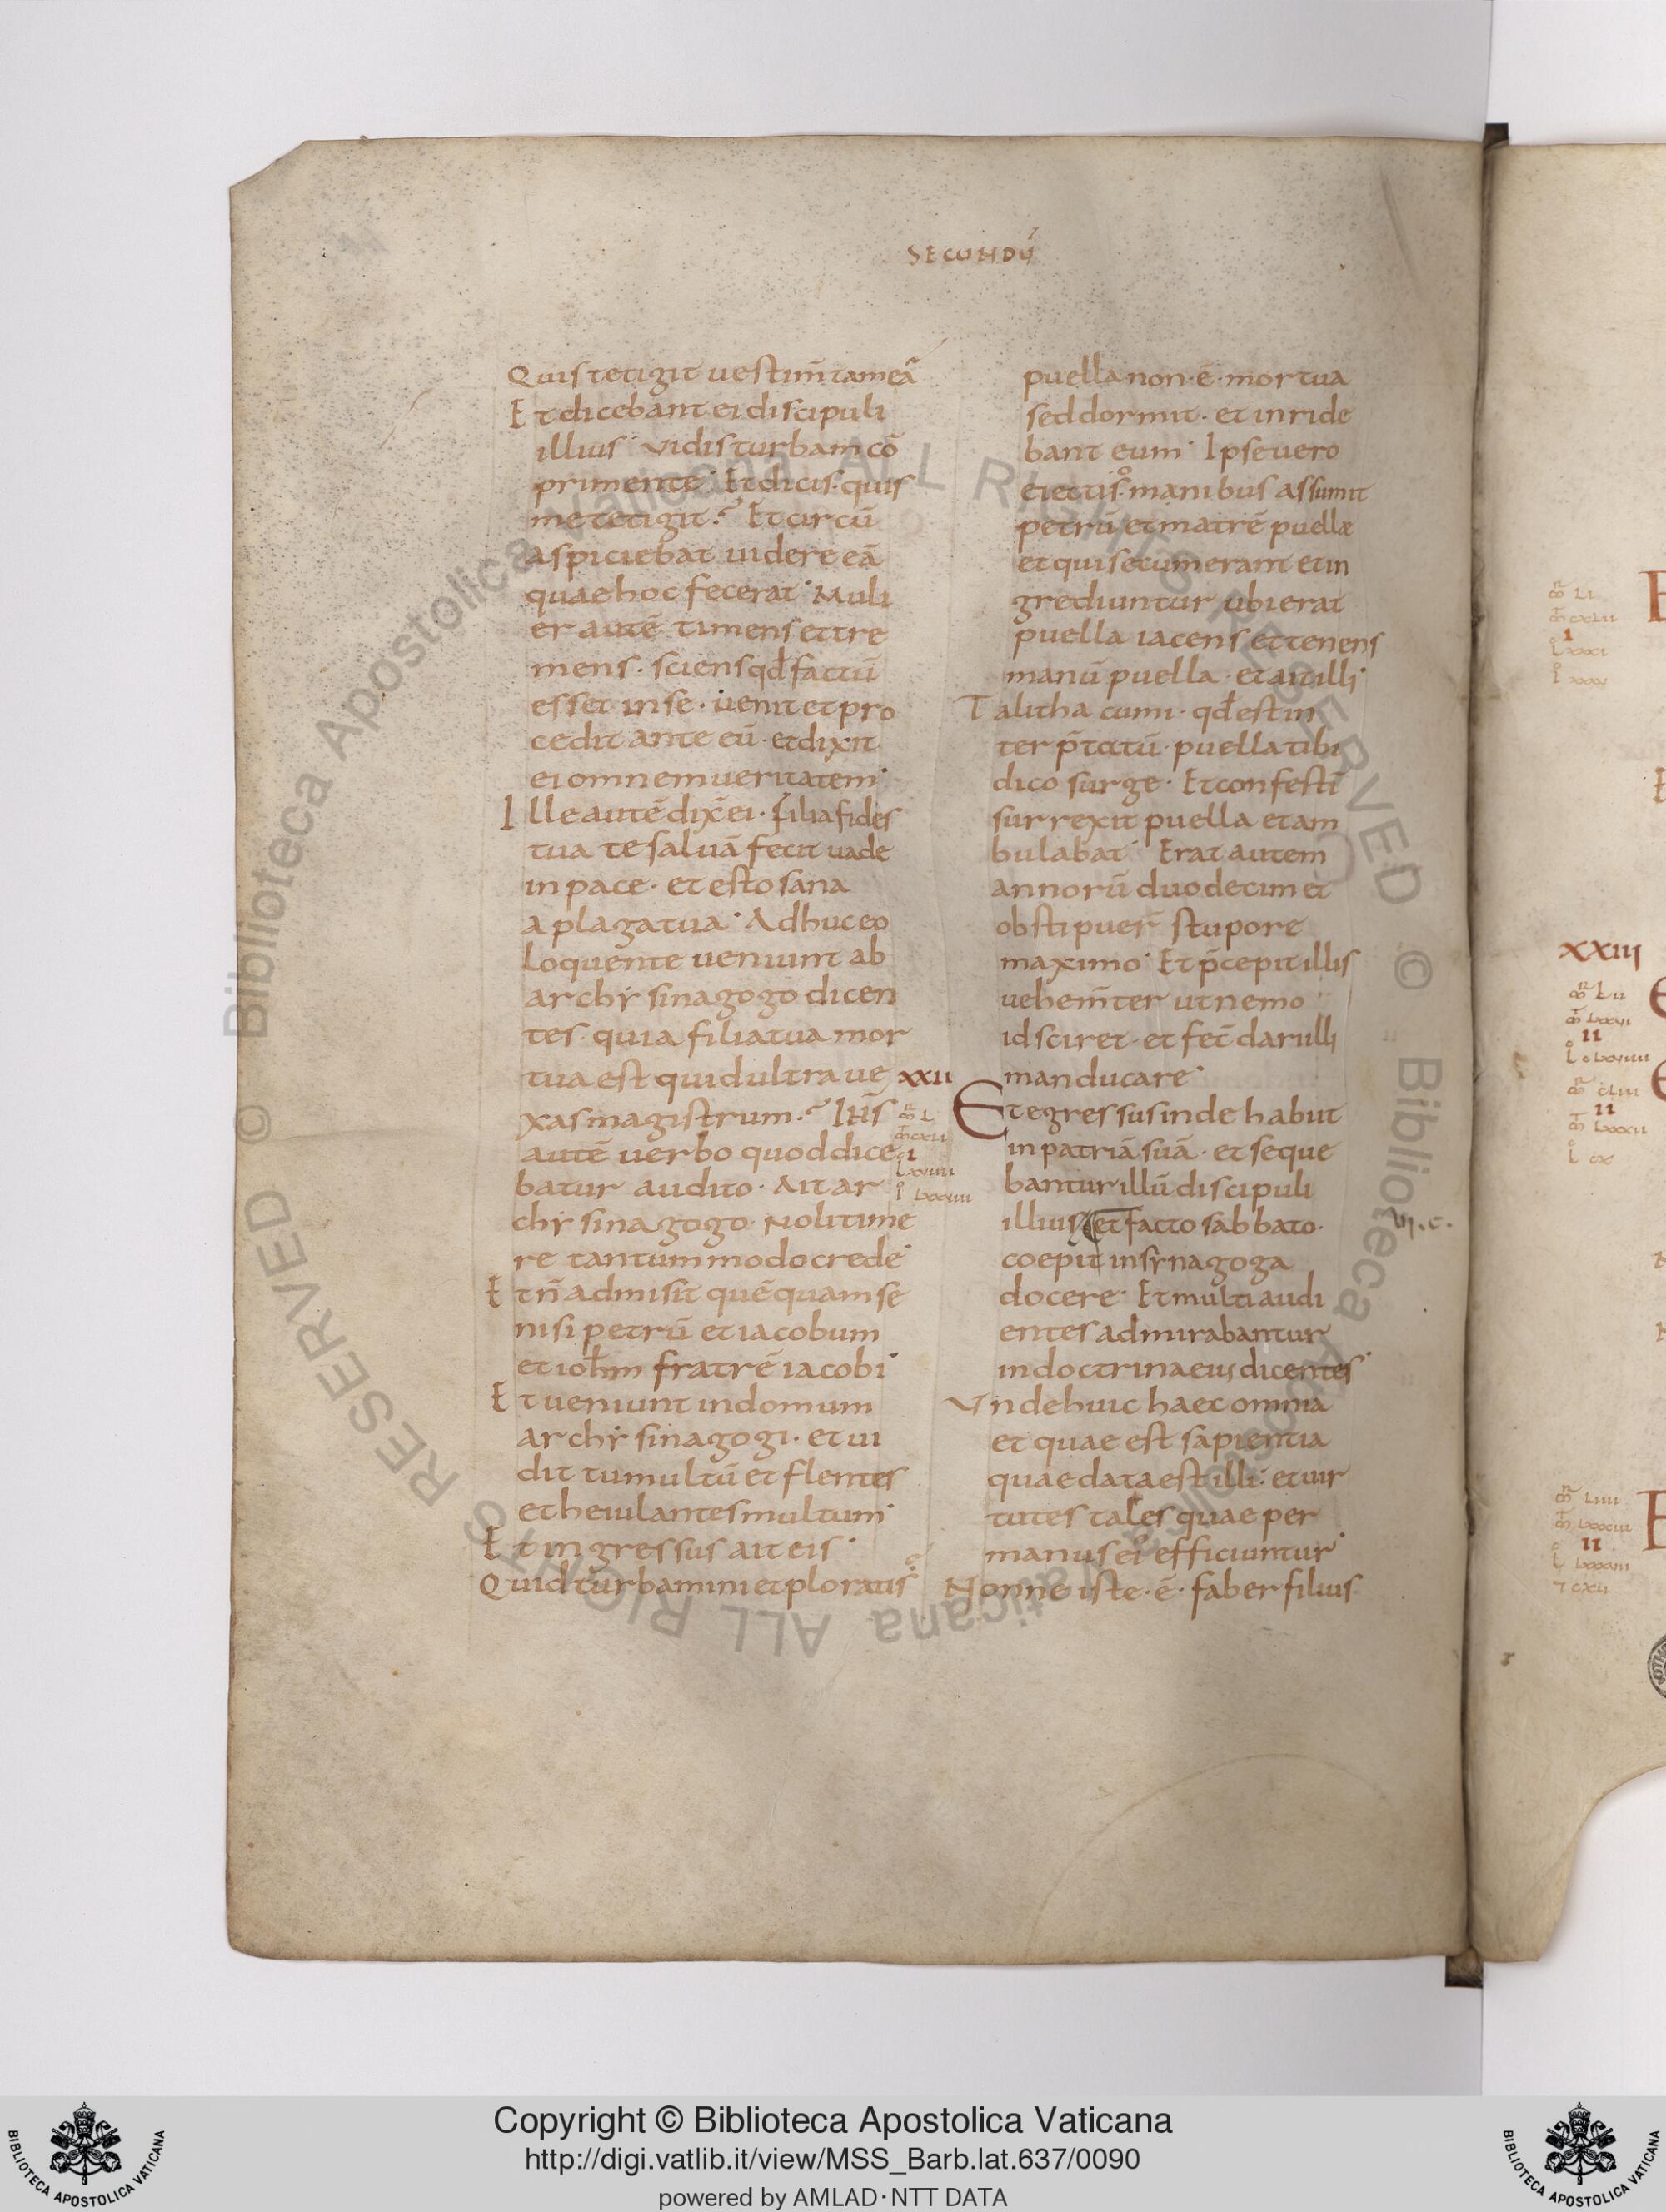 SECUNDŪ
Quis tetigit uestim̄ta mea
Et dicebant ei discipuli
illius· vidis turbam cō
primente· Et dicis· quis
me tetigit? Et circū
aspiciebat uidere eā
quae hoc fecerat· Muli
er autē timens et tre
mens· sciens qđ factū
esset in se· uenit et pro
cedit ante eū· et dixit
ei omnem ueritatem·
Ille autē dix̄ ei· filia fides
tua te saluā fecit uade
in pace· et esto sana
a plaga tua· Adhuc eo
Loquente ueniunt ab
archẏ sinagogo dicen
tes· quia filia tua mor
tua est quid ultra ue
xas magistrum? IHS̄
autē uerbo quod dice
batur audito· Ait ar
chẏ sinagogo· Noli time
re tantummodo crede·
Et n̄ admisit quēquam se
nisi petrū et iacobum
et ioħm fratrē iacobi·
Et ueniunt in domum
archẏ sinagogi· et ui
dit tumultū et flentes
et heiulantes multum·
Et ingressus ait eis·
Quid turbamini et ploratis
puella non·ē·mortua
sed dormit· et inride
bant eum· Ipse uero
eiectis· manibus assumit
petrū et matrē puellæ
et qui secum erant et in
grediuntur ubi erat
puella iacens et tenens
manū puella· et ait illi·
Talitha cumi· qđ est in
ter p̄tatū· puella tibi
dico surge· Et confestī
surrexit puella et am
bulabat· Erat autem
annorū duodecim et
obstipuer̄ stupore
maximo· Et p̄cepit illis
uehem̄ter ut nemo
id sciret· et fec̄ dari illi
manducare·
XXII
Et egressus inde habiit
in patriā suā· et seque
bantur illū discipuli
illius et facto sabbato·
coepit in sẏnagoga
docere· Et multi audi
entes admirabantur
in doctrina eius dicentes·
Vnde huic haec omnia
et quae est sapientia
quae data est illi: et uir
tutes tales quae per
manus ei efficiuntur·
Nonne iste·ē·faber filius
XXIII
Copyright © Biblioteca Apostolica Vaticana
http://digi.vatlib.it/view/MSS_Barb.lat.637/0090
powered by AMLAD·NTT DATA
BIBLIOTECA APOSTOLICA VATICANA
BIBLIOTECA APOSTOLICA VATICANA
© Biblioteca Apostolica Vaticana ALL RIGHTS RESERVED
© Biblioteca Apostolica Vaticana ALL RIGHTS RESERVED